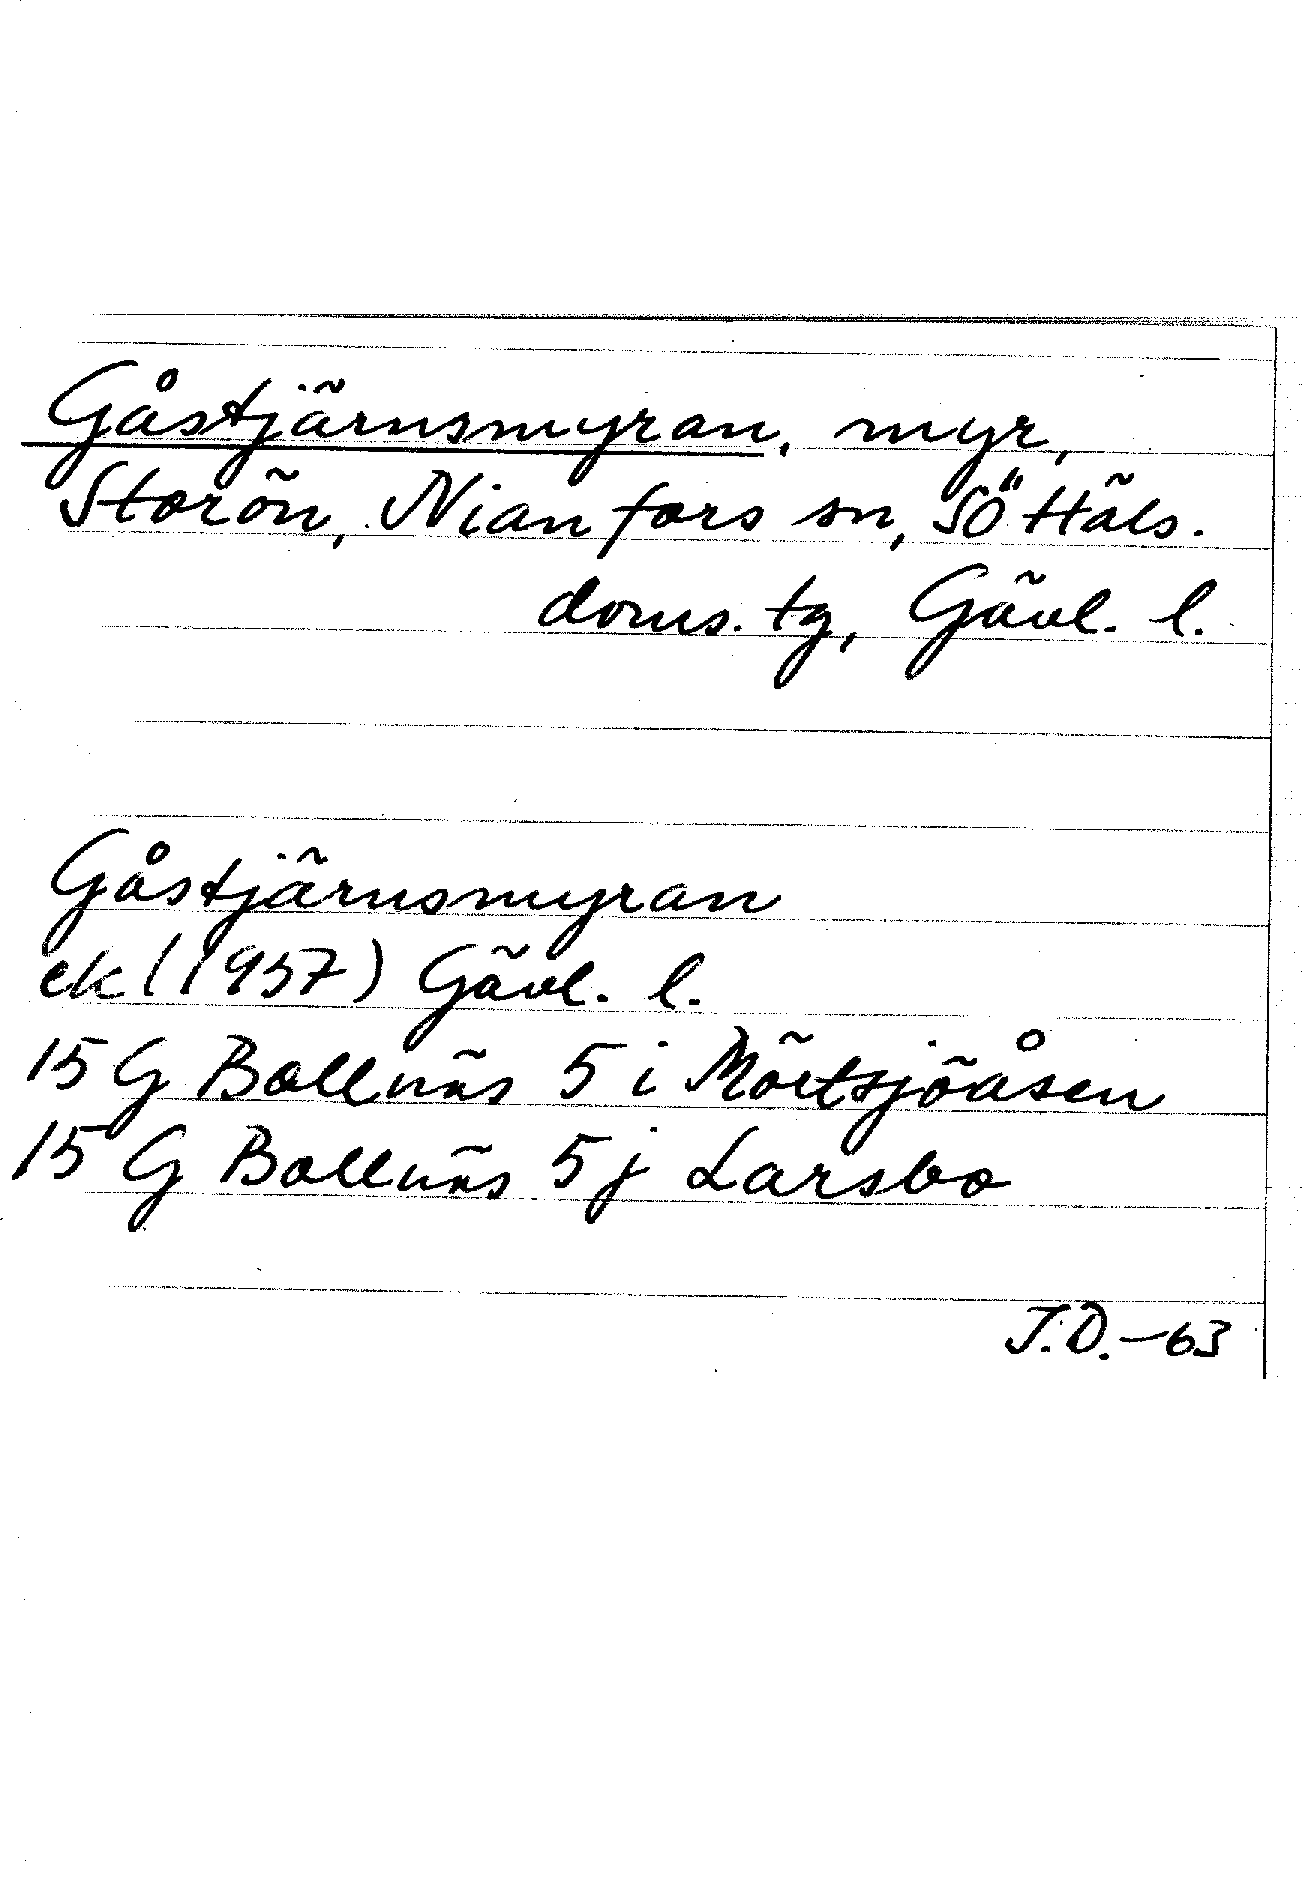 Gåstjärnsmyran, myr,
Storön, Nianfors sn, SÖ Häls.
doms. tg, Gävl. l.
Gåstjärnsmyran
ek (1957) Gävl. l.
15 G Bollnäs 5 i Mörtsjöåsen
15 G Bollnäs 5 j Larsbo
J.D.-63